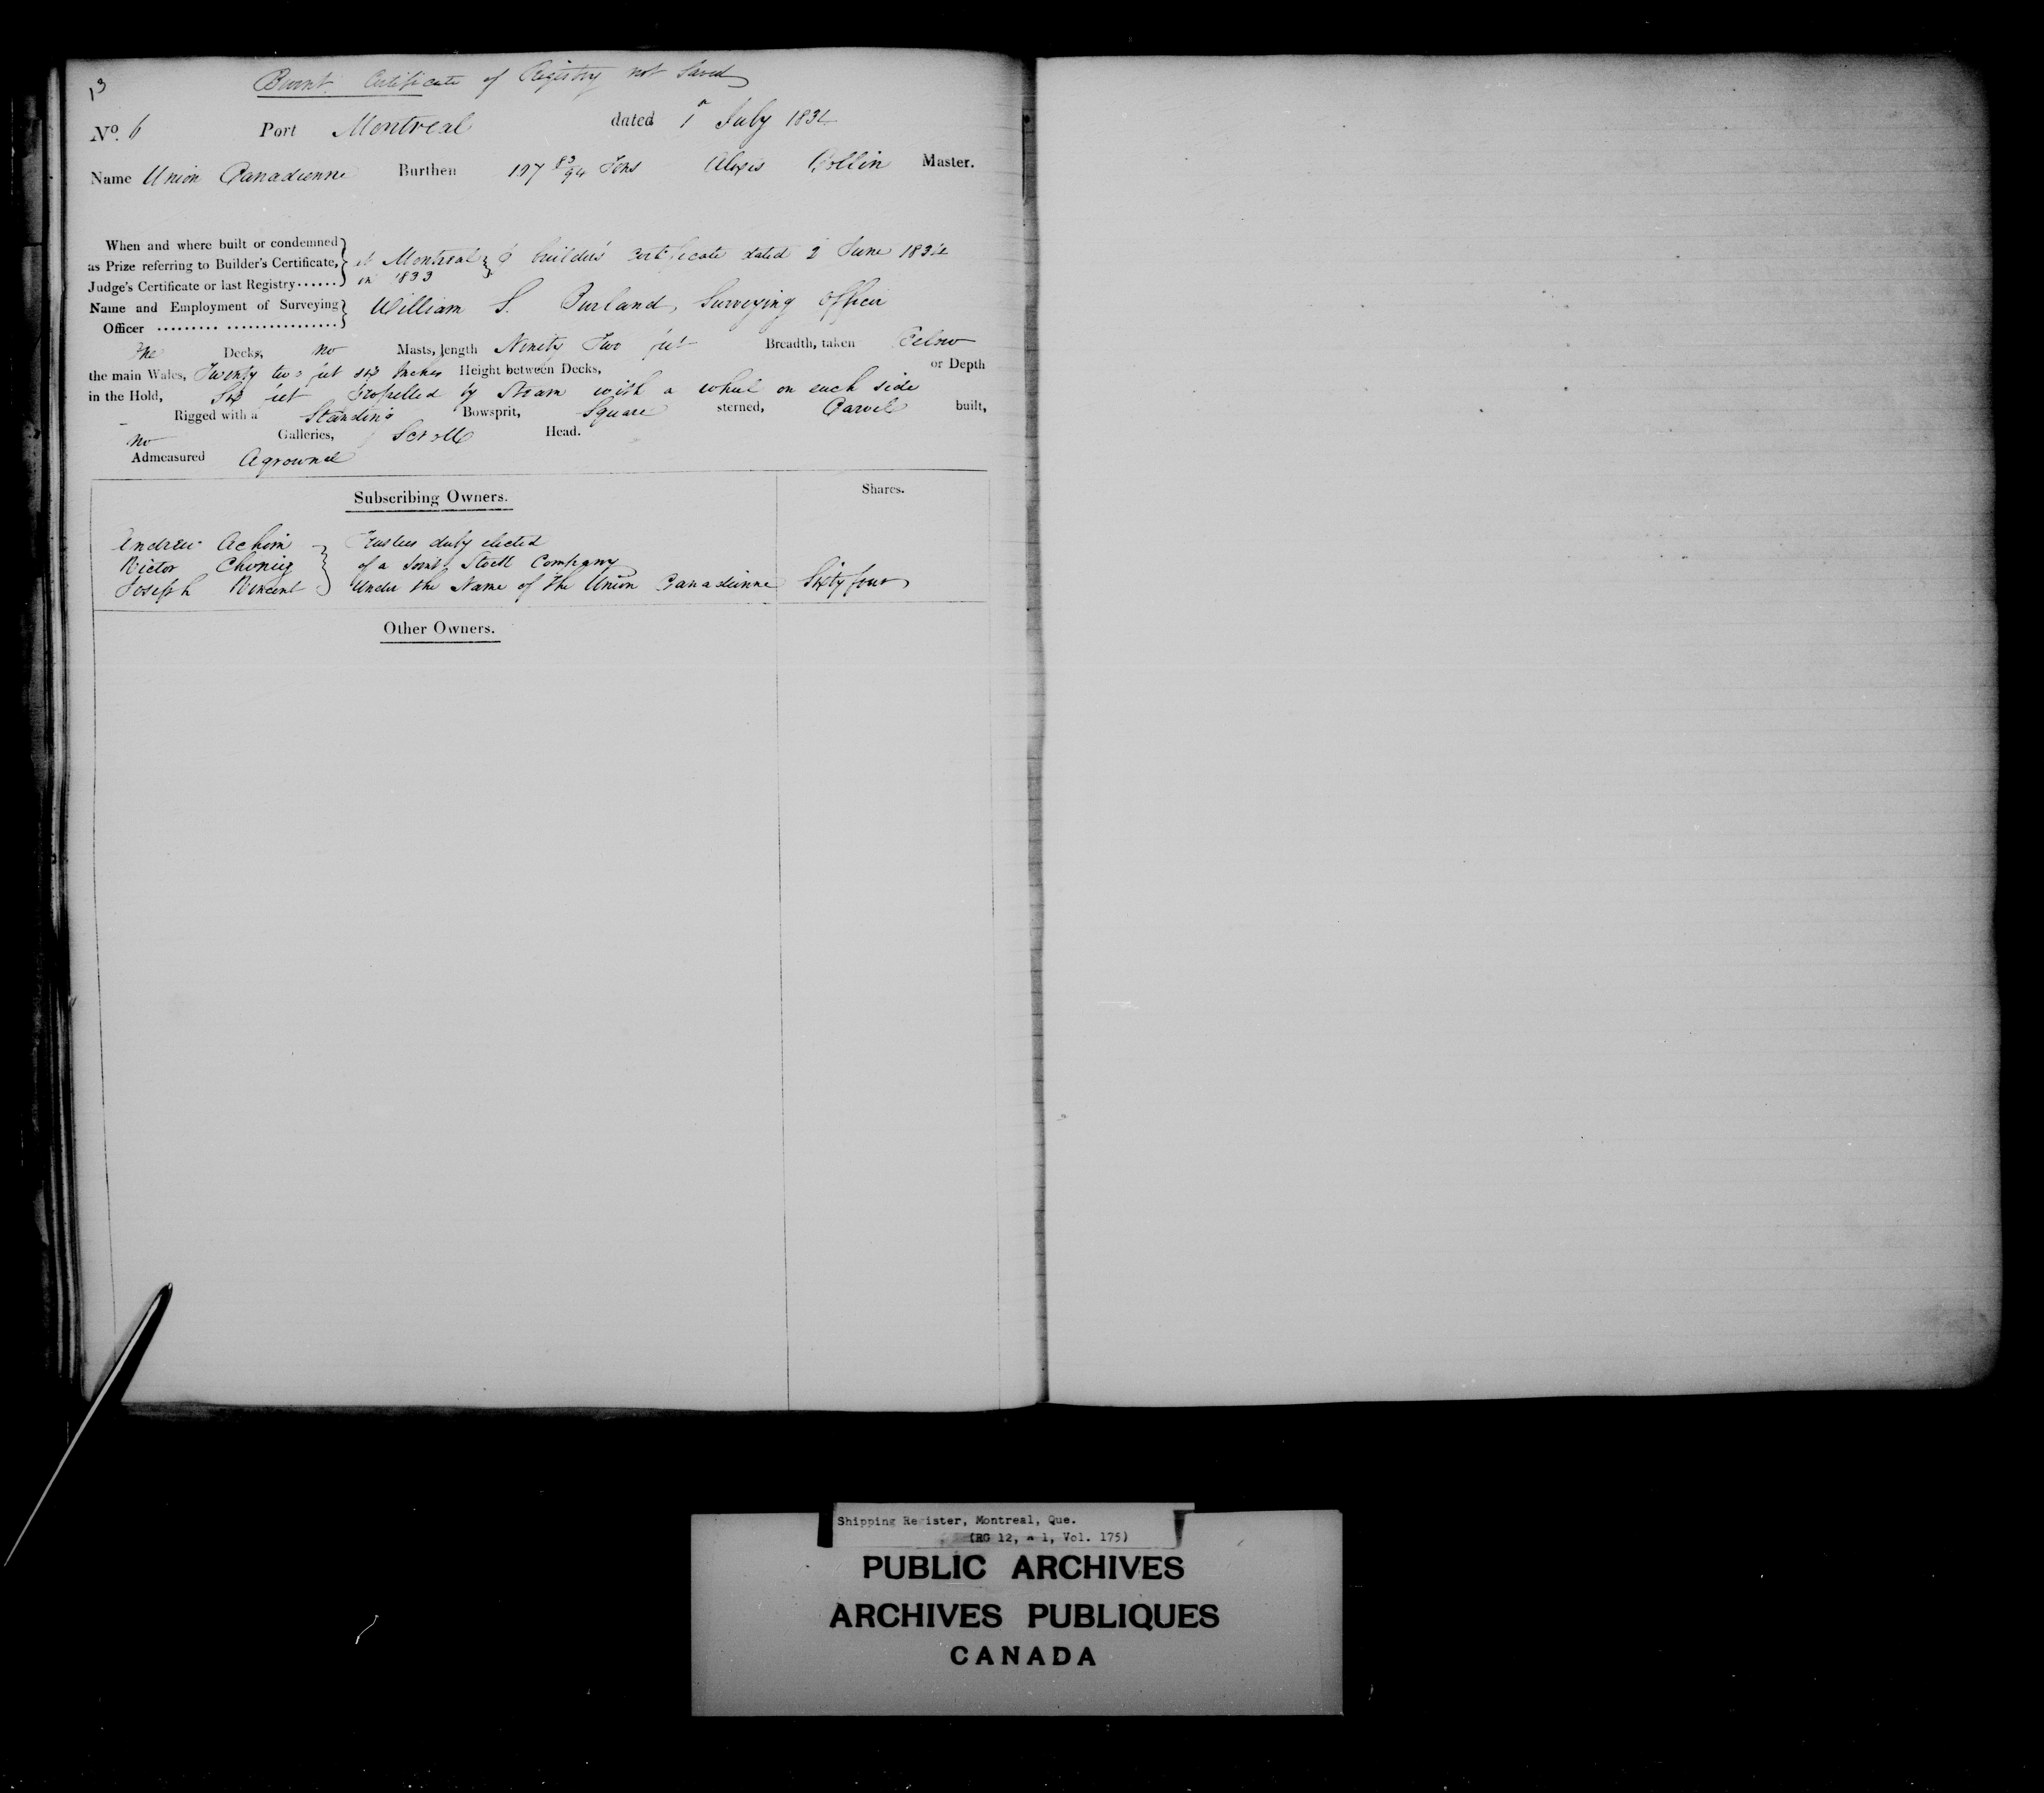 13
Burnt Certificate of Registry not Saved
No. 6 Port Montreal dated 1 July 1834
Name Union Canadienne Burthen 197 83/94 Tons Alexis Collin Master.
When and where built or condemned
as Prize referring to Builder's Certificate, at Montreal builder's certificate dated 2 June 1834
Judge's Certificate or last Registry...... in 1833
Name and Employment of Surveying William S. Burland, Surveying Officer
Officer ......... ................
One Decks, no Masts, length Ninety Two feet Breadth, taken below
the main Wales, Twenty two feet six Inches Height between Decks, or Depth
in the Hold, Six feet Propelled by Steam with a wheel on each side
Rigged with a Standing Bowsprit, Square sterned, Carvel built,
no Galleries, Scroll Head.
Admeasured Aground
Subscribing Owners. Shares.
Andrew Achim Trustees duly elected
Victor of a Joint Stock Company
Joseph Vincent under the Name of the Union Canadienne Sixty four
Other Owners.
Shipping Register, Montreal, Que.
(RG 12, A 1, Vol. 175)
PUBLIC ARCHIVES
ARCHIVES PUBLIQUES
CANADA